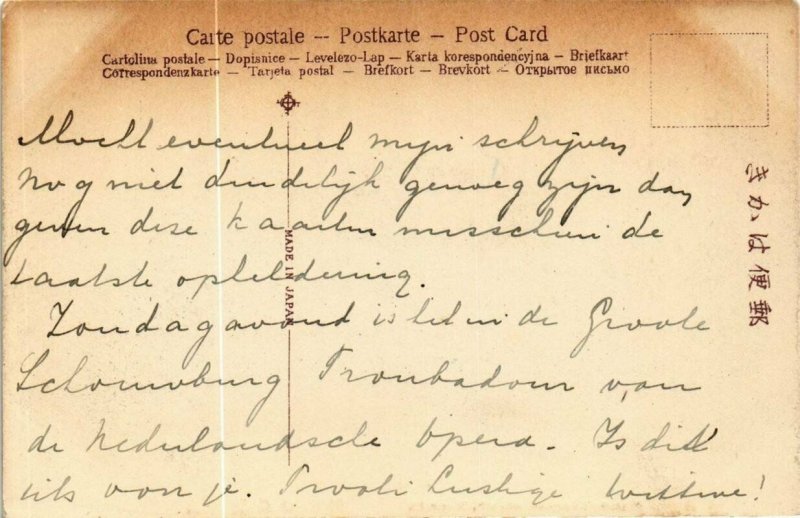 Carte postale -- Postkarte — Post Card
Cartolina postale — Dopisnice — Levelezo-Lap — Karta korespondencyjna — Briefkaart
Correspondenzkarte — Tarjeta postal — Brefkort — Brevkort — Открытое письмо
Mocht eventueel mijn schrijven
nog niet duidelijk genoeg zijn dan
geven deze kaarten misschien de
laatste opheldering.
Zondagavond is het in de Groote
Schouwburg Troubadour van
de Nederlandsche Opera. Is dit
iets voor je. Tivoli Lustige Wittwe!
MADE IN JAPAN
きかは便郵